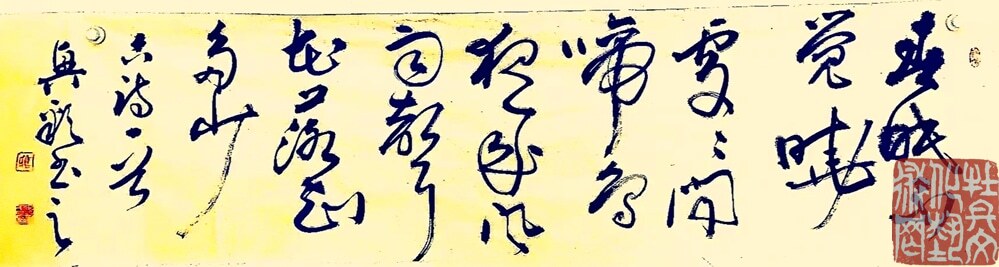 春眠不
觉晓
处处闻
啼鸟
夜来风
雨声
花落知
多少
古诗一首
书之